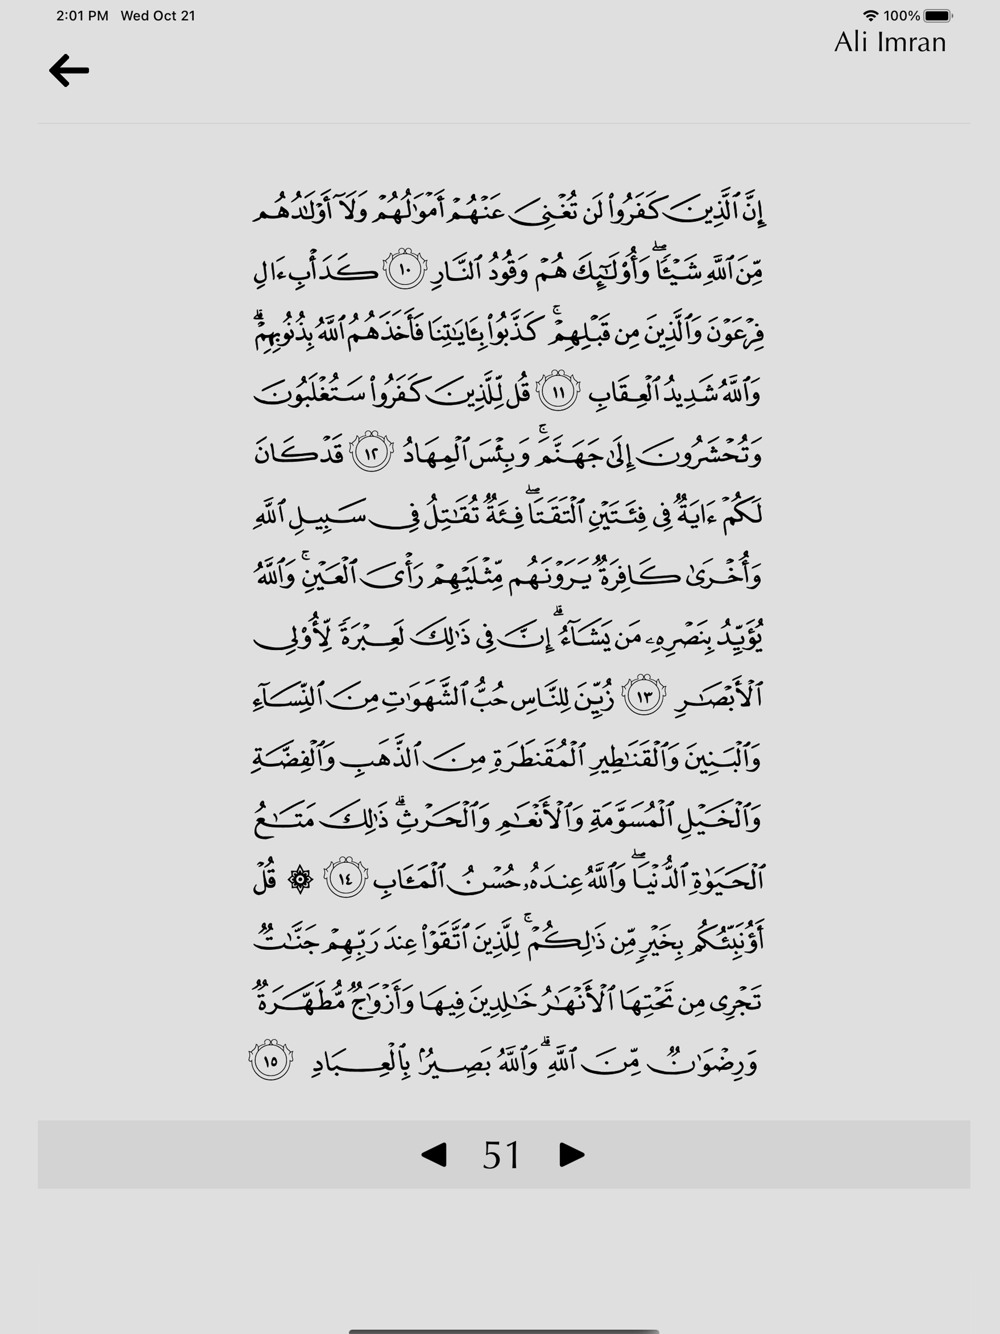 2:01 PM Wed Oct 21 100%
Ali Imran
إِنَّ ٱلَّذِينَ كَفَرُوا۟ لَن تُغْنِىَ عَنْهُمْ أَمْوَٰلُهُمْ وَلَآ أَوْلَـٰدُهُم
مِّنَ ٱللَّهِ شَيْـًٔا ۖ وَأُو۟لَـٰٓئِكَ هُمْ وَقُودُ ٱلنَّارِ ١٠ كَدَأْبِ ءَالِ
فِرْعَوْنَ وَٱلَّذِينَ مِن قَبْلِهِمْ ۚ كَذَّبُوا۟ بِـَٔايَـٰتِنَا فَأَخَذَهُمُ ٱللَّهُ بِذُنُوبِهِمْ ۗ
وَٱللَّهُ شَدِيدُ ٱلْعِقَابِ ١١ قُل لِّلَّذِينَ كَفَرُوا۟ سَتُغْلَبُونَ
وَتُحْشَرُونَ إِلَىٰ جَهَنَّمَ ۚ وَبِئْسَ ٱلْمِهَادُ ١٢ قَدْ كَانَ
لَكُمْ ءَايَةٌ فِى فِئَتَيْنِ ٱلْتَقَتَا ۖ فِئَةٌ تُقَـٰتِلُ فِى سَبِيلِ ٱللَّهِ
وَأُخْرَىٰ كَافِرَةٌ يَرَوْنَهُم مِّثْلَيْهِمْ رَأْىَ ٱلْعَيْنِ ۚ وَٱللَّهُ
يُؤَيِّدُ بِنَصْرِهِۦ مَن يَشَآءُ ۗ إِنَّ فِى ذَٰلِكَ لَعِبْرَةً لِّأُو۟لِى
ٱلْأَبْصَـٰرِ ١٣ زُيِّنَ لِلنَّاسِ حُبُّ ٱلشَّهَوَٰتِ مِنَ ٱلنِّسَآءِ
وَٱلْبَنِينَ وَٱلْقَنَـٰطِيرِ ٱلْمُقَنطَرَةِ مِنَ ٱلذَّهَبِ وَٱلْفِضَّةِ
وَٱلْخَيْلِ ٱلْمُسَوَّمَةِ وَٱلْأَنْعَـٰمِ وَٱلْحَرْثِ ۗ ذَٰلِكَ مَتَـٰعُ
ٱلْحَيَوٰةِ ٱلدُّنْيَا ۖ وَٱللَّهُ عِندَهُۥ حُسْنُ ٱلْمَـَٔابِ ١٤ ۞ قُلْ
أَؤُنَبِّئُكُم بِخَيْرٍ مِّن ذَٰلِكُمْ ۚ لِلَّذِينَ ٱتَّقَوْا۟ عِندَ رَبِّهِمْ جَنَّـٰتٌ
تَجْرِى مِن تَحْتِهَا ٱلْأَنْهَـٰرُ خَـٰلِدِينَ فِيهَا وَأَزْوَٰجٌ مُّطَهَّرَةٌ
وَرِضْوَٰنٌ مِّنَ ٱللَّهِ ۗ وَٱللَّهُ بَصِيرٌۢ بِٱلْعِبَادِ ١٥
51